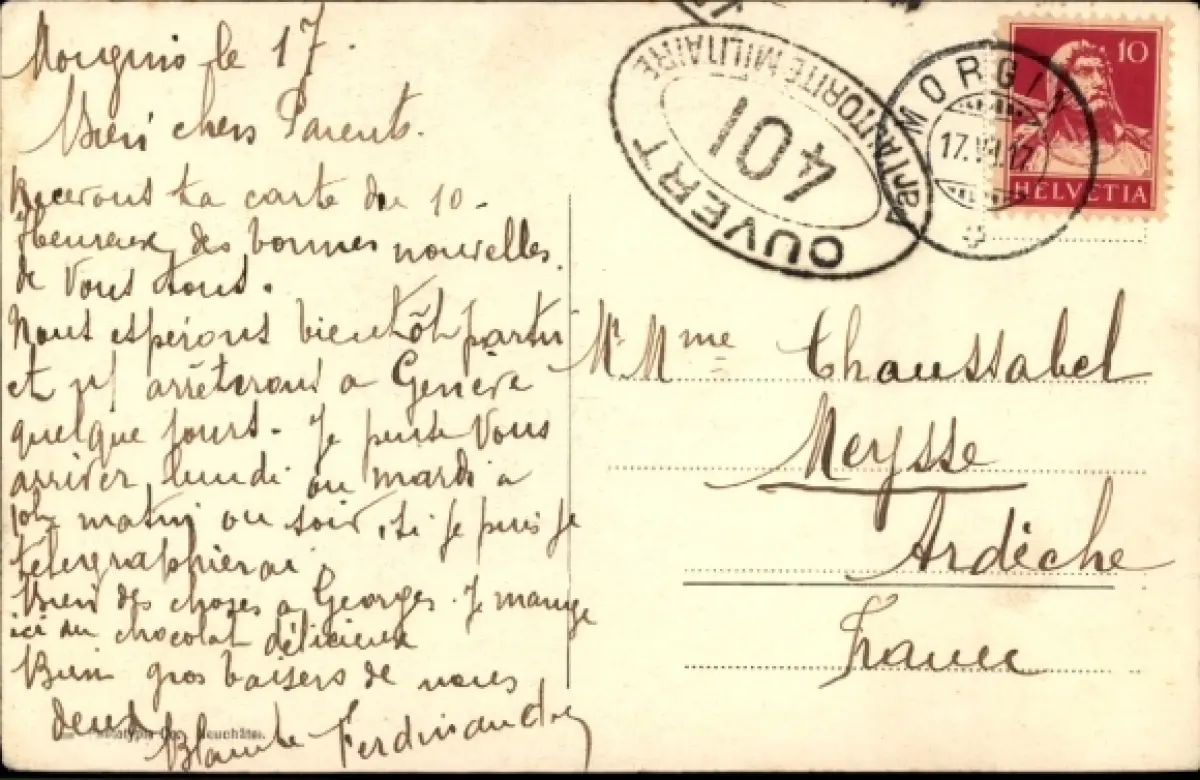 le 17.
Bien chers Parents.
ta carte du 10 -
heureux des bonnes nouvelles
de vous tous.
Nous espérons bientôt partir
et ns arrêterons a Genève
quelque jours. Je pense vous
arriver lundi ou mardi a
10h matin ou soir, si je puis je
telegraphierai.
Bien des choses a Georges. Je mange
ici du chocolat délicieux
Bien gros baisers de nous
deux Blanche Ferdinand
OUVERT
PAR L'AUTORITÉ MILITAIRE
401
MORGI
17.VII.17
10
HELVETIA
Mr Mme Chaussabel
Meysse
Ardèche
France